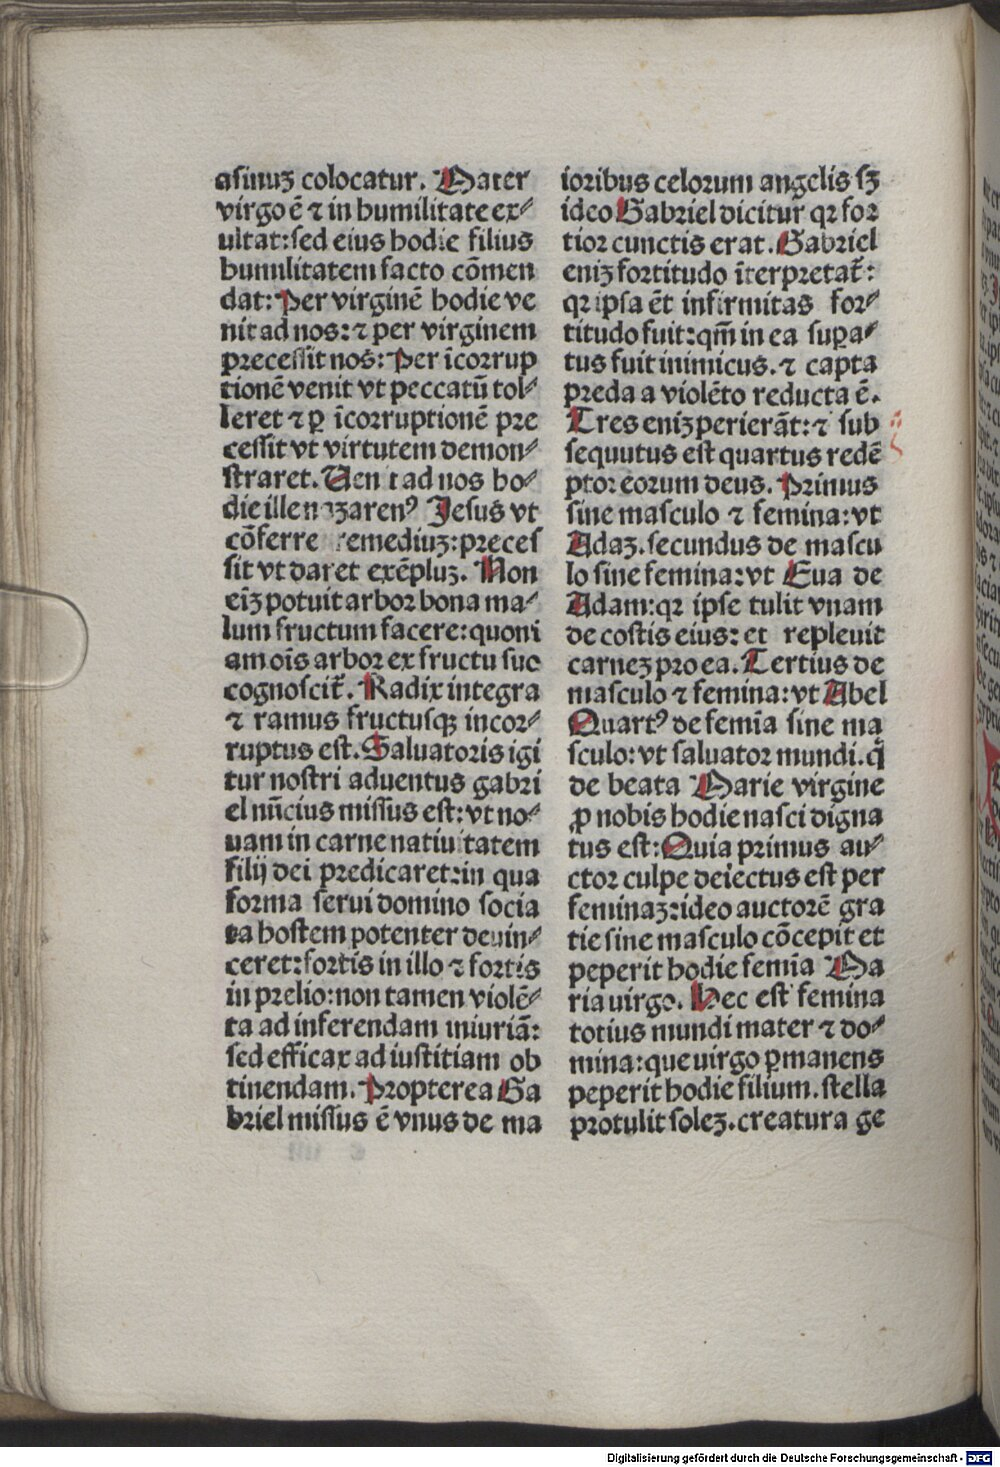 asinuꝫ colocatur. Mater
virgo ē ⁊ in humilitate ex⸗
ultat: sed eius hodie filius
humilitatem facto cōmen
dat: Per virginē hodie ve
nit ad nos: ⁊ per virginem
precessit nos: Per īcorrup
tionē venit vt peccatū tol⸗
leret ⁊ ꝑ īcorruptionē pre
cessit vt virtutem demon⸗
straret. Uenit ad nos ho⸗
die ille nazarenꝰ Jesus vt
cōferre remediuꝫ: preces
sit vt daret exēpluꝫ. Non
eīꝫ potuit arbor bona ma⸗
lum fructum facere: quoni
am oīs arbor ex fructu suo
cognoscit̄. Radix integra
⁊ ramus fructusqꝫ incor⸗
ruptus est. Saluatoris igi
tur nostri aduentus gabri
el nūcius missus est: vt no⸗
uam in carne natiuitatem
filij dei predicaret: in qua
forma serui domino socia
ta hostem potenter deuin⸗
ceret: fortis in illo ⁊ fortis
in prelio: non tamen violē⸗
ta ad inferendam iniuriā:
sed efficax ad iustitiam ob
tinendam. Propterea Ga
briel missus ē vnus de ma
ioribus celorum angelis sꝫ
ideo Gabriel dicitur qr for
tior cunctis erat. Gabriel
eniꝫ fortitudo īterpretat̄:
qr ipsa ēt infirmitas for⸗
titudo fuit: qm̄ in ea suꝑa⸗
tus fuit inimicus. ⁊ capta
preda a violēto reducta ē.
Tres eniꝫ perierāt: ⁊ sub
sequutus est quartus redē
ptor eorum deus. Primus
sine masculo ⁊ femina: vt
Adaꝫ. secundus de mascu
lo sine femina: vt Eua de
Adam: qr ipse tulit vnam
de costis eius: et repleuit
carneꝫ pro ea. Tertius de
masculo ⁊ femina: vt Abel
Quartꝰ de femīa sine ma
sculo: vt saluator mundi. q̄
de beata Marie virgine
ꝓ nobis hodie nasci digna
tus est: Quia primus au⸗
ctor culpe deiectus est per
feminaꝫ: ideo auctorē gra
tie sine masculo cōcepit et
peperit hodie femīa Ma
ria uirgo. Hec est femina
totius mundi mater ⁊ do⸗
mina: que uirgo ꝑmanens
peperit hodie filium. stella
protulit soleꝫ. creatura ge
Digitalisierung gefördert durch die Deutsche Forschungsgemeinschaft - DFG